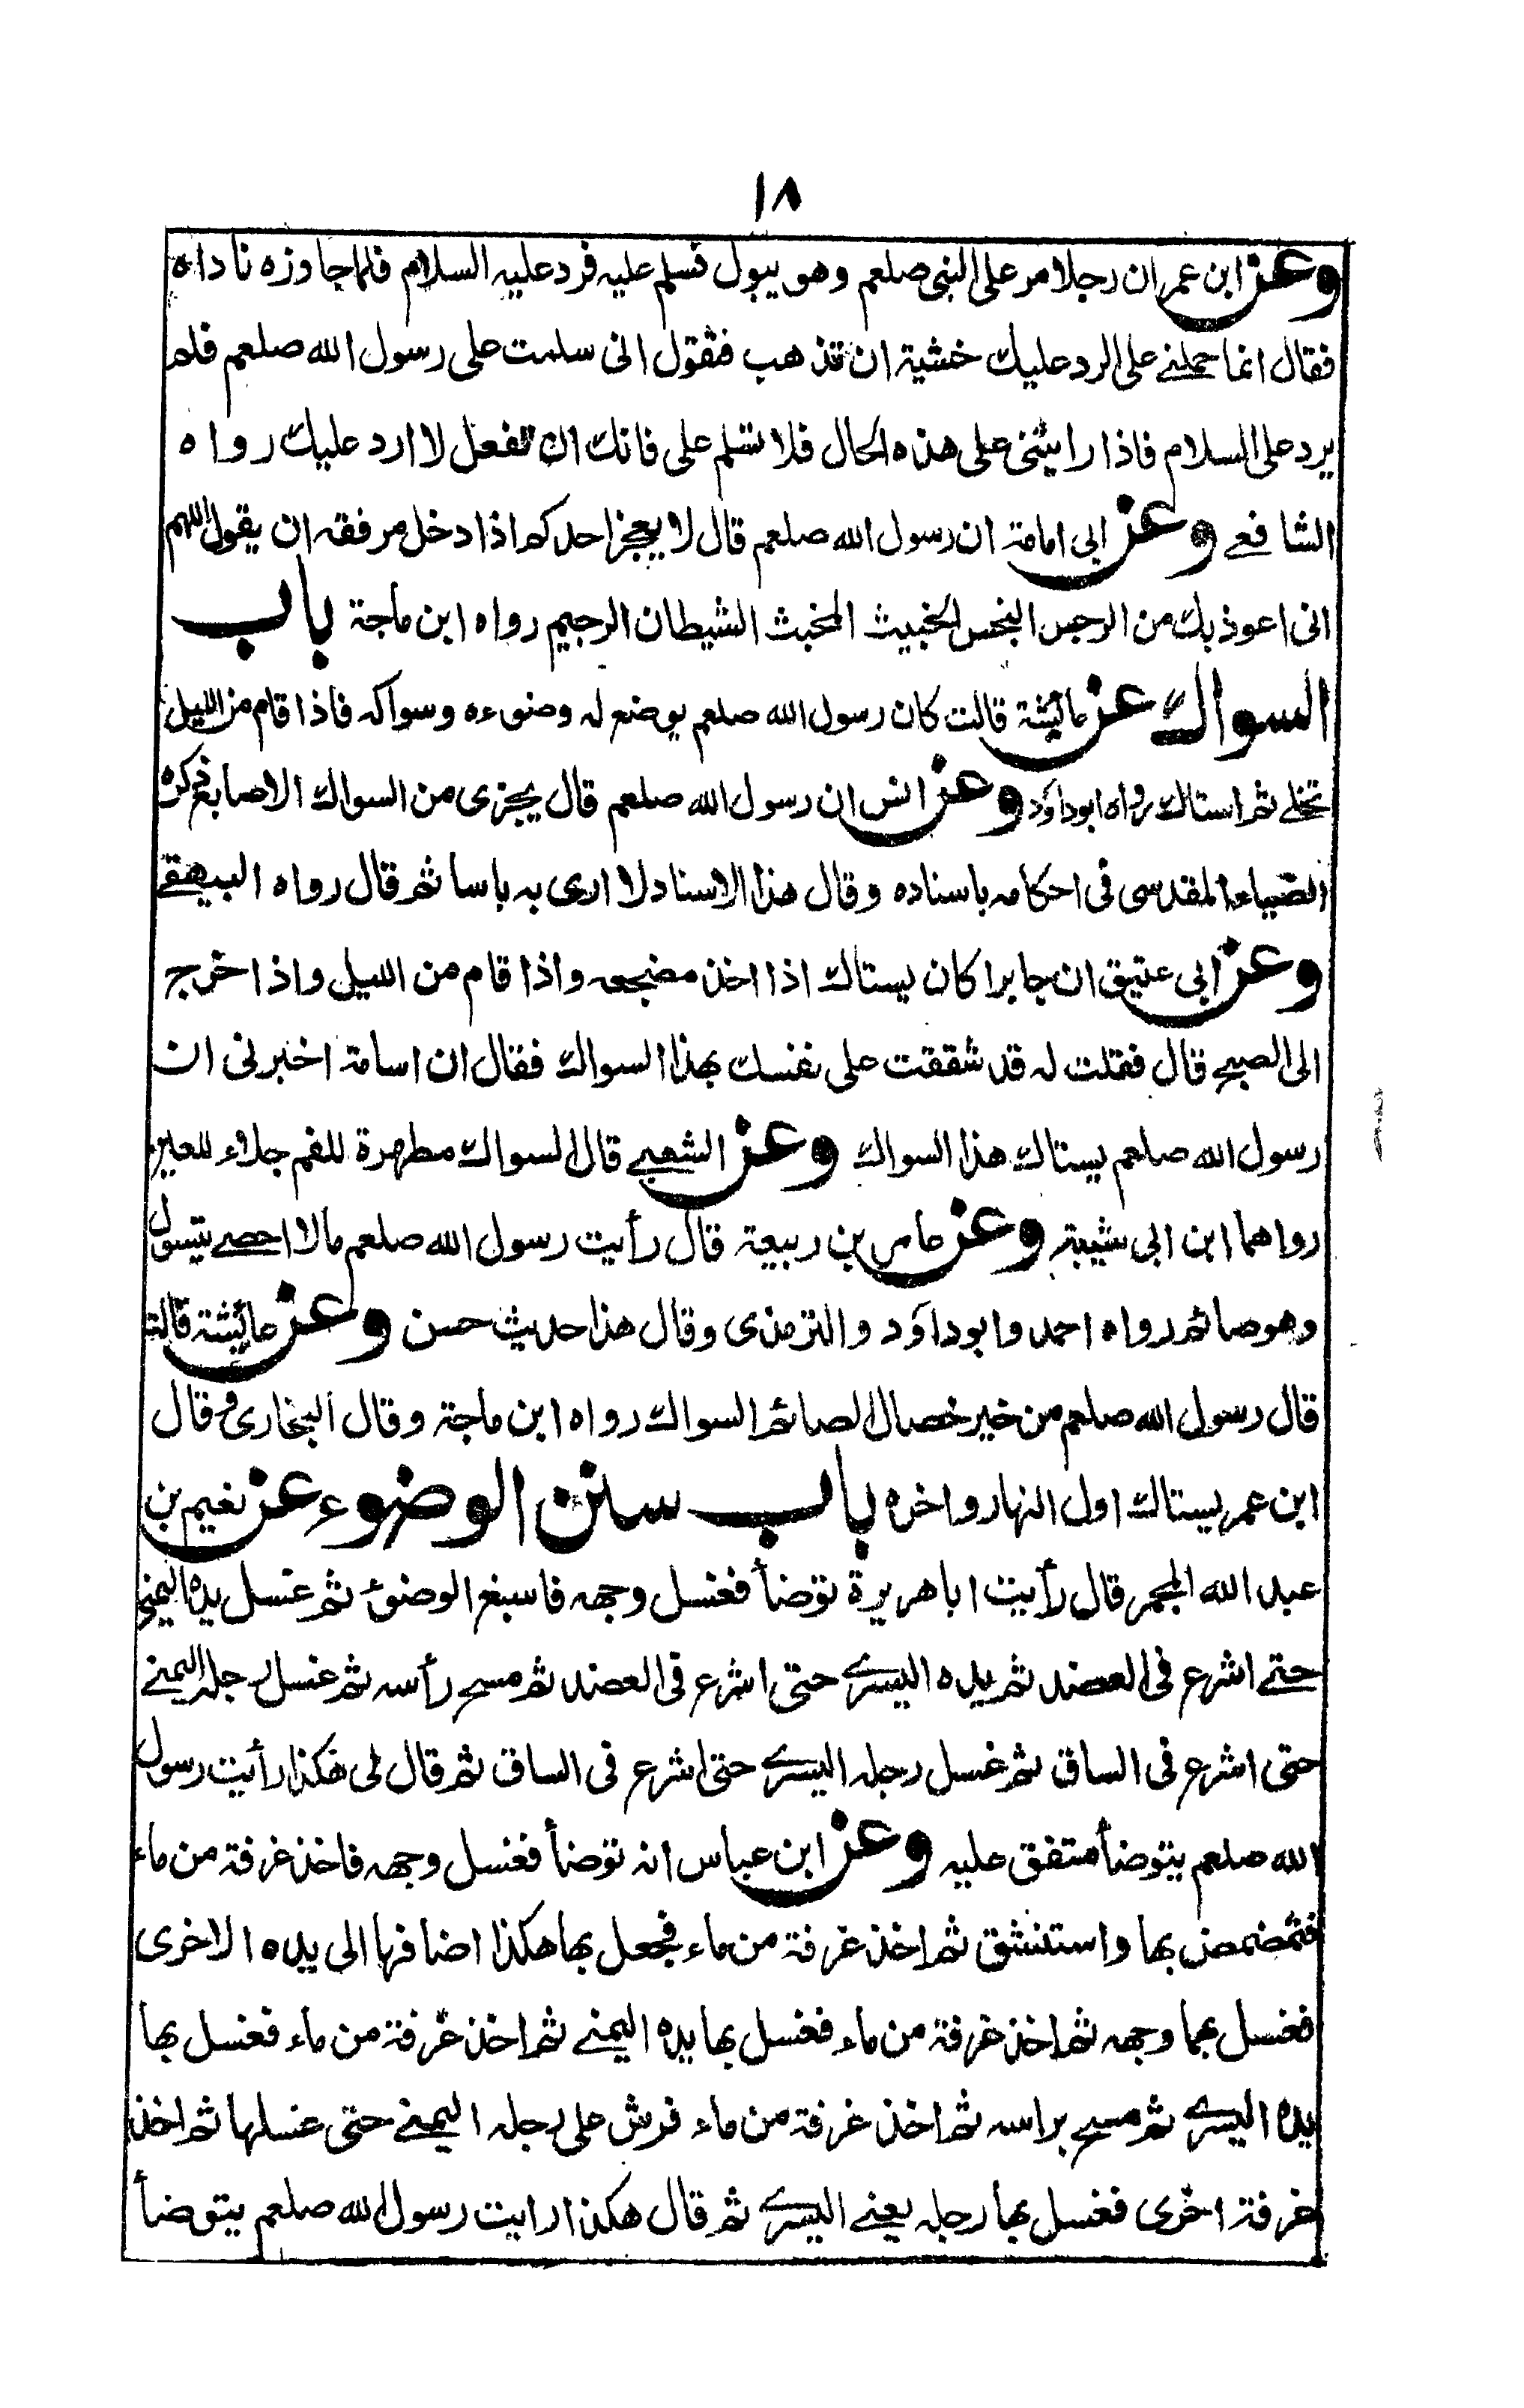 ١٨
وعن ابن عمر ان رجلا مر على النبى صلعم وهو يبول فسلم عليه فرد عليه السلام فلما جاوزه ناداه
فقال انما حملنے على الرد عليك خشية ان تذهب فتقول انى سلمت على رسول الله صلعم فلم
يرد على السلام فاذا رايتنى على هذه الحال فلا تسلم على فانك ان تفعل لا ارد عليك رواه
الشافعے وعن ابى امامة ان رسول الله صلعم قال لا يعجز احدكم اذا دخل مرفقه ان يقول اللهم
انى اعوذ بك من الرجس النجس الخبيث المخبث الشيطان الرجيم رواه ابن ماجة باب
السواك عن عائشة قالت كان رسول الله صلعم يوضع له وضوءه وسواكه فاذا قام من الليل
تخلے ثم استاك رواه ابوداود وعن انس ان رسول الله صلعم قال يجزى من السواك الاصابع ذكره
الضياء المقدسى فى احكامه باسناده وقال هذا الاسناد لا ارى به باسا ثم قال رواه البيهقے
وعن ابى عتيق ان جابرا كان يستاك اذا اخذ مضجعه واذا قام من الليل واذا خرج
الى الصبح قال فقلت له قد شققت على نفسك بهذا السواك فقال ان اسامة اخبرنى ان
رسول الله صلعم يستاك هذا السواك وعن الشعبے قال السواك مطهرة للفم جلاء للعين
رواهما ابن ابى شيبة وعن عامر بن ربيعة قال رأيت رسول الله صلعم مالا احصے يتسوك
وهو صائم رواه احمد وابوداود والترمذى وقال هذا حديث حسن وعن عائشة قالت
قال رسول الله صلعم من خير خصال الصائم السواك رواه ابن ماجة وقال البخارى وقال
ابن عمر يستاك اول النهار واخره باب سنن الوضوء عن نعيم بن
عبد الله المجمر قال رأيت ابا هريرة توضأ فغسل وجهه فاسبغ الوضوء ثم غسل يده اليمنى
حتے اشرع فى العضد ثم يده اليسرے حتى اشرع فى العضد ثم مسح رأسه ثم غسل رجله اليمنے
حتى اشرع فى الساق ثم غسل رجله اليسرے حتى اشرع فى الساق ثم قال لى هكذا رأيت رسول
الله صلعم يتوضأ متفق عليه وعن ابن عباس انه توضأ فغسل وجهه فاخذ غرفة من ماء
فتمضمض بها واستنشق ثم اخذ غرفة من ماء فجعل بها هكذا اضافها الى يده الاخرى
فغسل بهما وجهه ثم اخذ غرفة من ماء فغسل بها يده اليمنے ثم اخذ غرفة من ماء فغسل بها
يده اليسرے ثم مسح براسه ثم اخذ غرفة من ماء فرش على رجله اليمنے حتى غسلها ثم اخذ
غرفة اخرى فغسل بها رجله يعنے اليسرے ثم قال هكذا رايت رسول الله صلعم يتوضأ